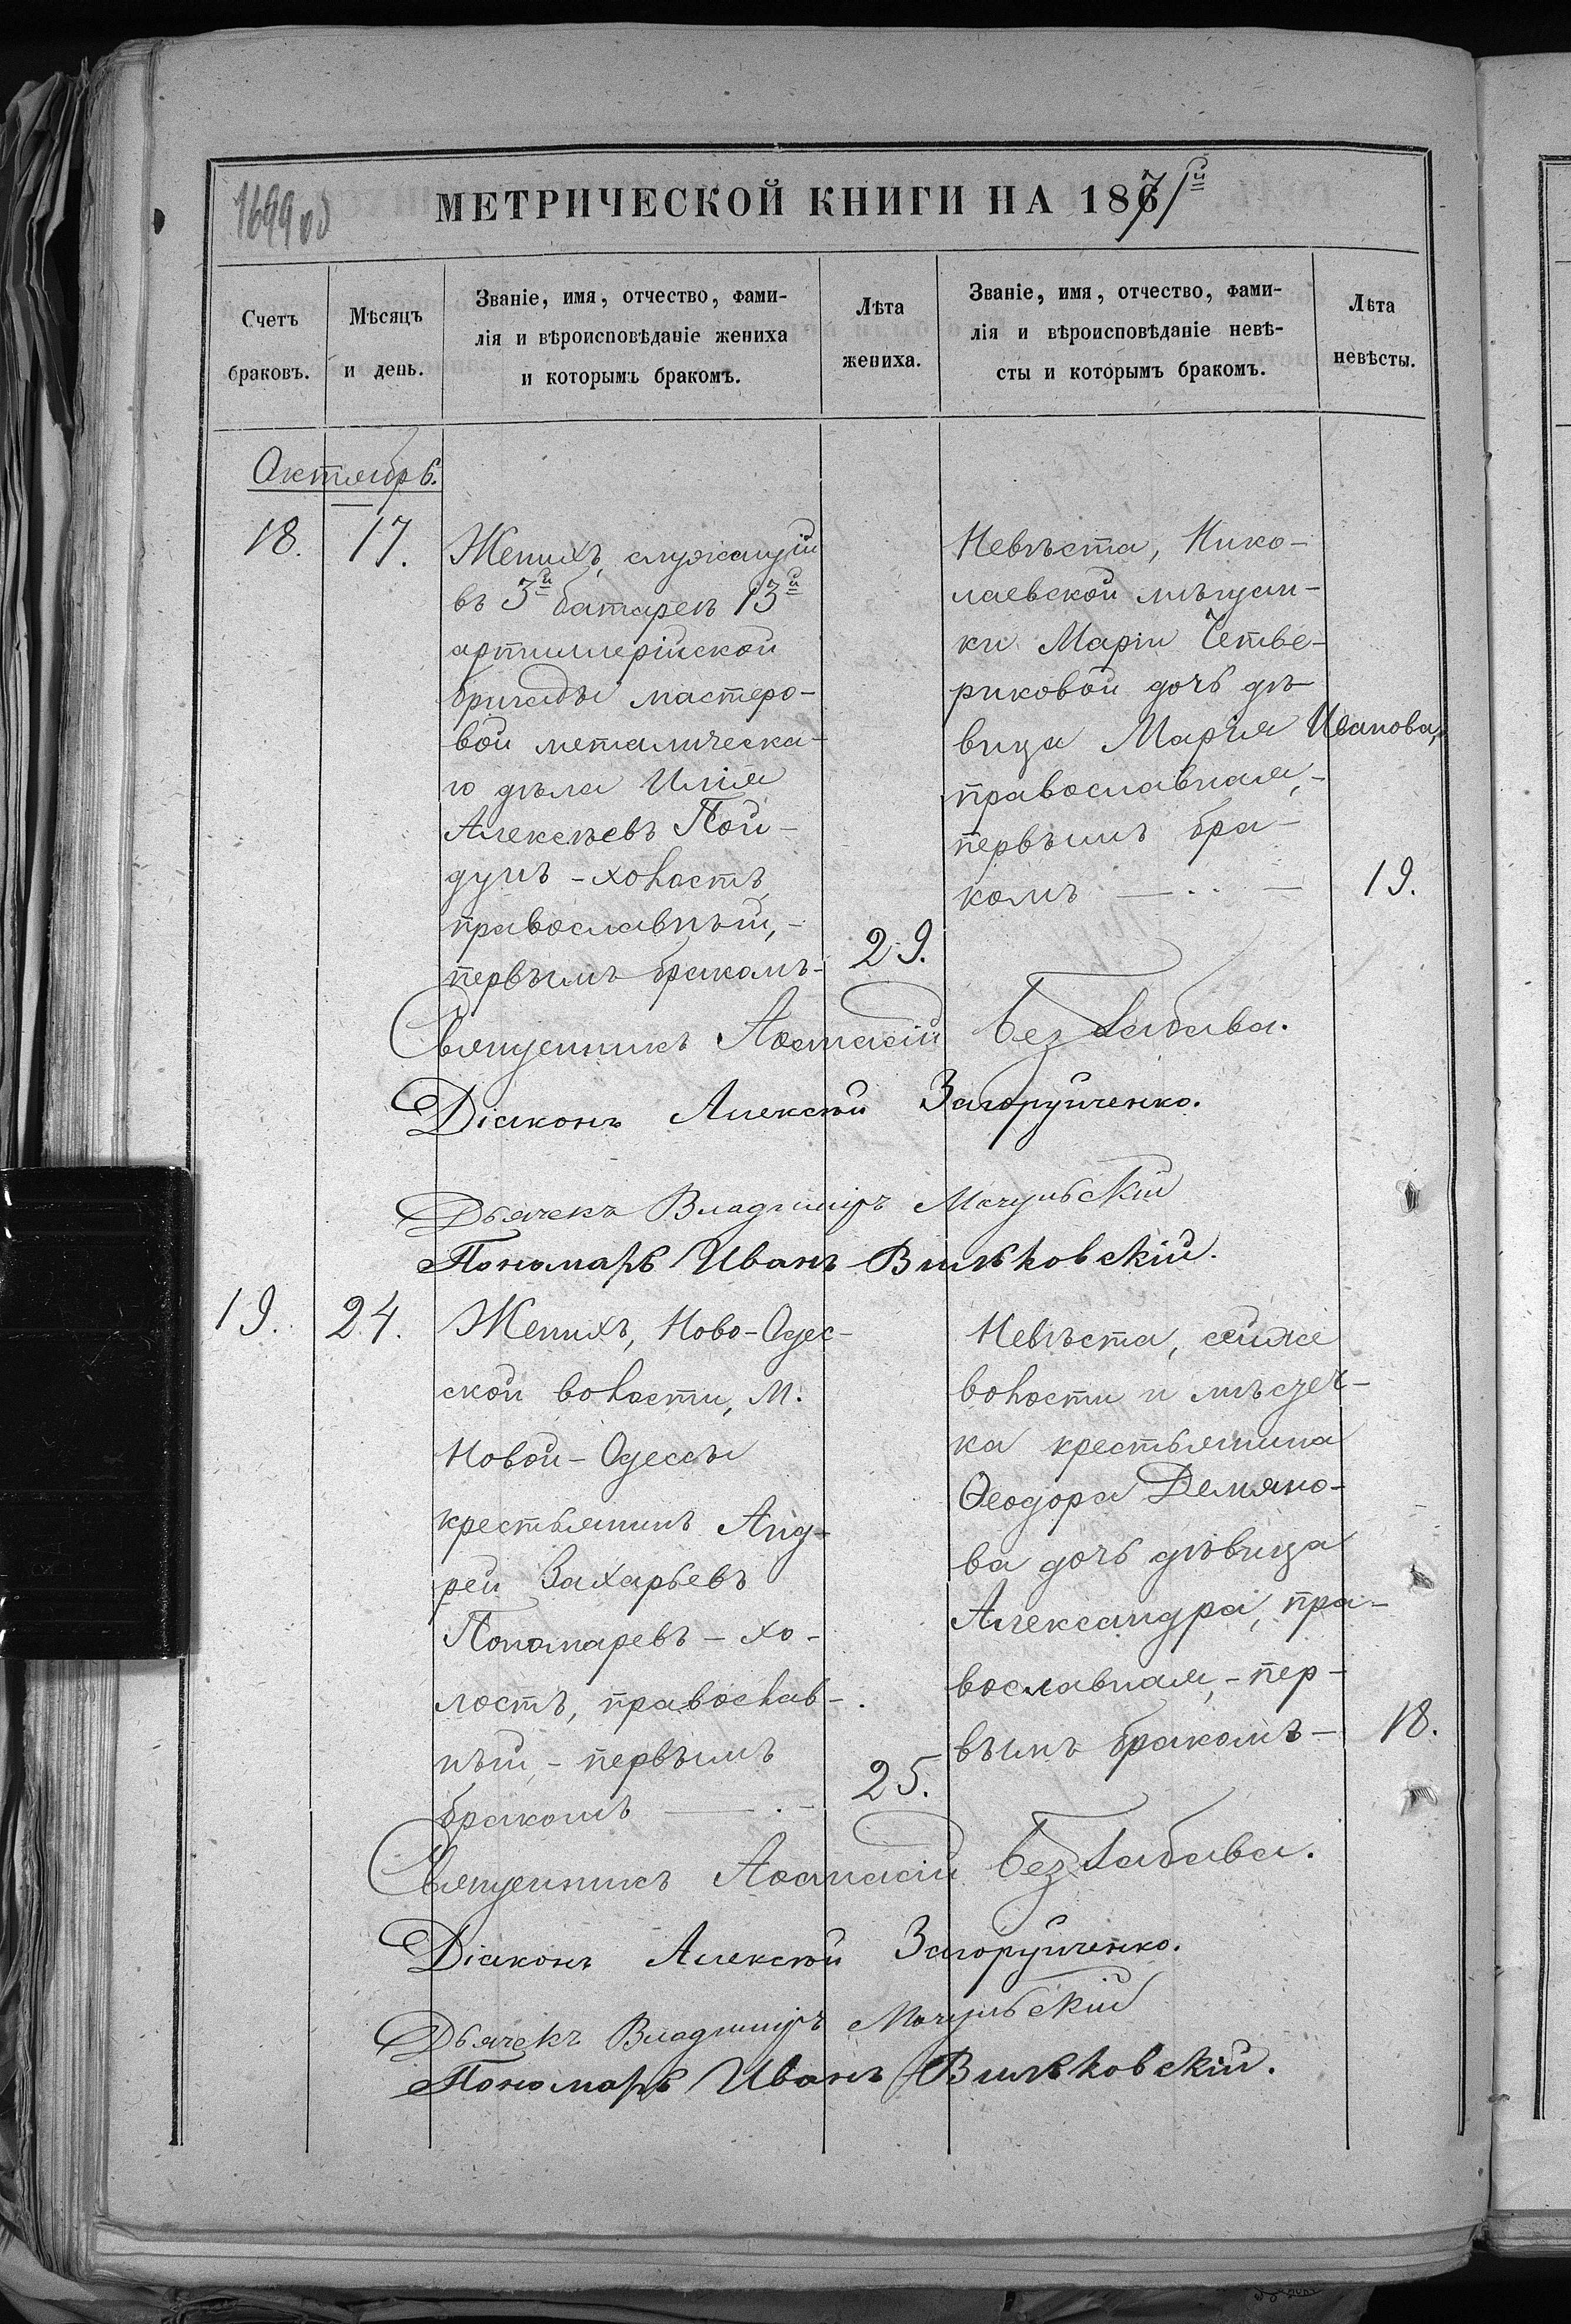 1699 об
МЕТРИЧЕСКОЙ КНИГИ НА 1871й
Счетъ браковъ.
Мѣсяцъ и день.
Званіе, имя, отчество, фами-
лія и вѣроисповѣданіе жениха
и которымъ бракомъ.
Лѣта жениха.
Званіе, имя, отчество, фами-
лія и вѣроисповѣданіе невѣ-
сты и которымъ бракомъ.
Лѣта невѣсты.
Октябрь.
18.
17.
Женихъ, служащій
въ 3й батареѣ 13й
артиллерійской
бригады мастеро-
вой металическа-
го дѣла Илія
Алексѣевъ Пой-
дунъ - холостъ,
православный, -
первымъ бракомъ -
29.
Невѣста, Нико-
лаевской мѣщан-
ки Маріи Четве-
риковой дочь дѣ-
вица Марія Иванова,
православная, -
первымъ бра-
комъ — .. —
19.
Священникъ Аѳанасій Беззабава.
Діаконъ Алексѣй Загоруйченко.
Дьячекъ Владиміръ Мачульскій
Пономарь Иванъ Вильковскій.
19.
24.
Женихъ, Ново-Одес-
ской волости, м.
Новой-Одессы
крестьянинъ Анд-
рей Захарьевъ
Пономаревъ - хо-
лостъ, православ-
ный, - первымъ
бракомъ — . -
25.
Невѣста, сейже
волости и мѣстеч-
ка крестьянина
Ѳеодора Демяно-
ва дочь дѣвица
Александра, пра-
вославная, - пер-
вымъ бракомъ -
18.
Священникъ Аѳанасій Беззабава.
Діаконъ Алексѣй Загоруйченко.
Дьячекъ Владиміръ Мачульскій
Пономарь Иванъ Вильковскій.